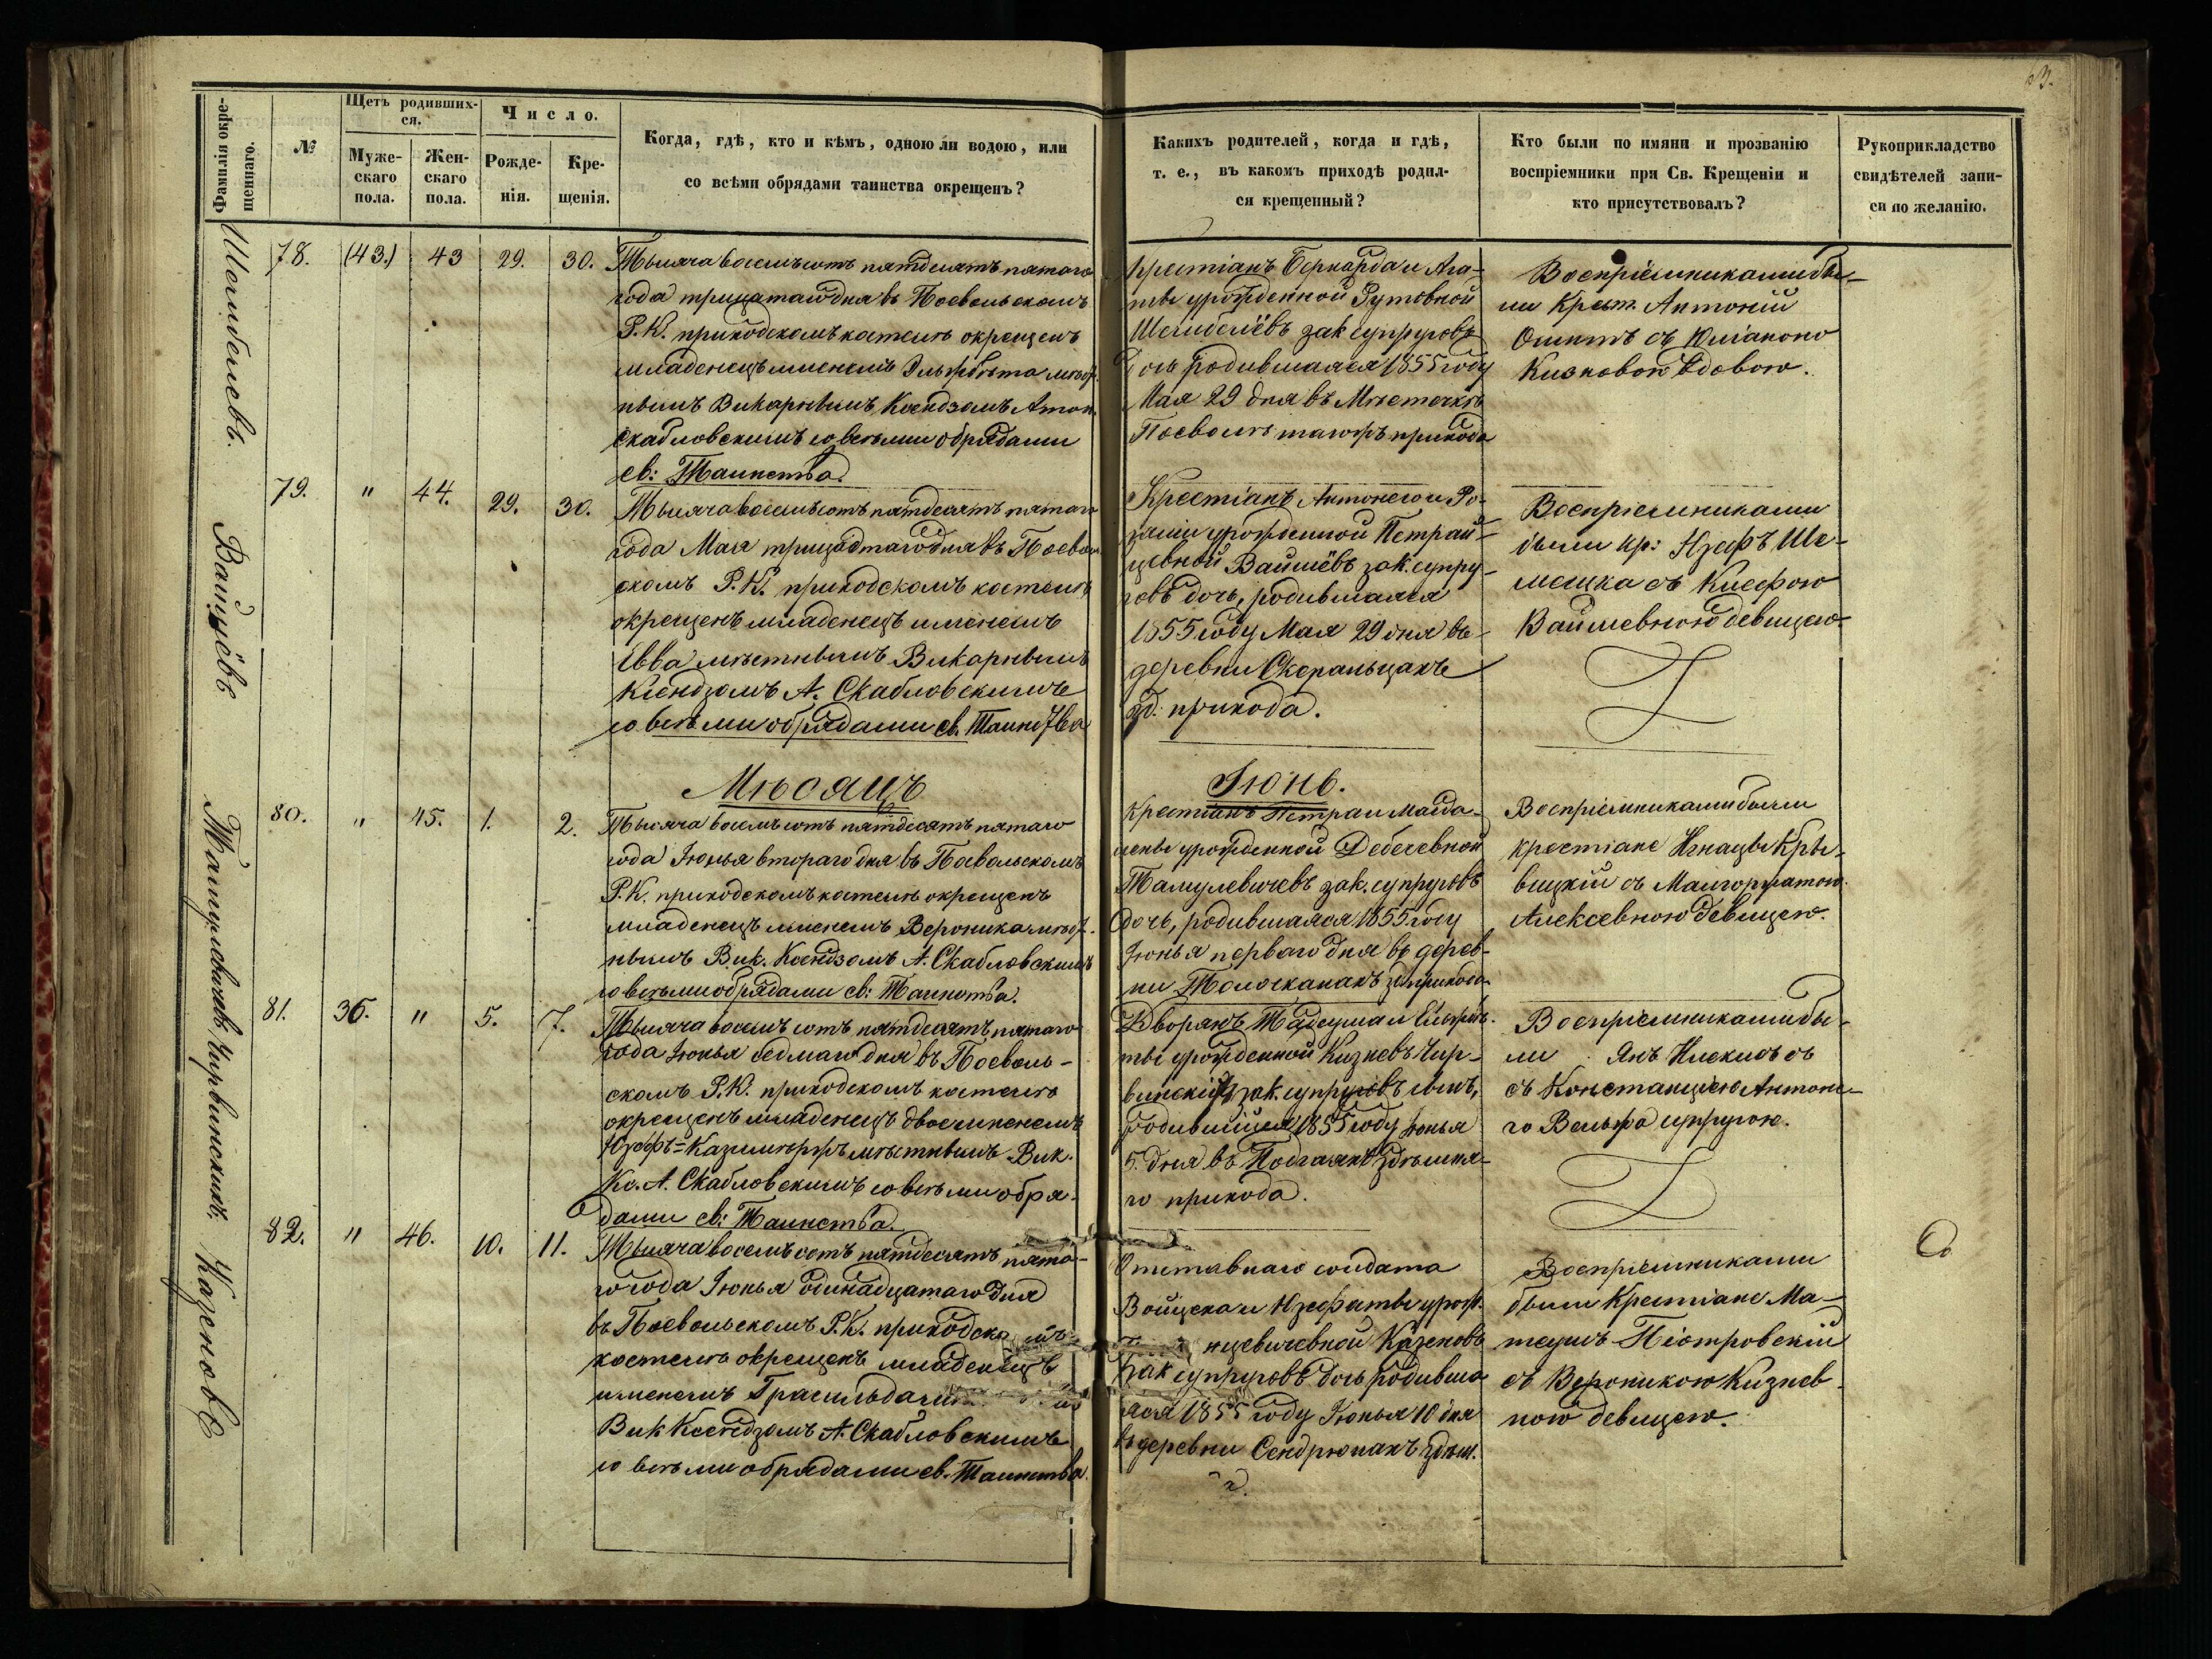 63.
Фамилія окре-
щеннаго.
№
Щетъ родивших-
ся.
Муже-
скаго
пола.
Жен-
скаго
пола.
Число.
Рожде-
нія.
Кре-
щенія.
Когда, гдѣ, кто и кѣмъ, одною ли водою, или
со всѣми обрядами таинства окрещенъ?
Какихъ родителей, когда и гдѣ,
т. е., въ какомъ приходѣ родил-
ся крещенный?
Кто были по имяни и прозванію
воспріемники при Св. Крещеніи и
кто присутствовалъ?
Рукоприкладство
свидѣтелей запи-
си по желанію.
78. (43.) 43 29. 30.
Тысяча восемьсотъ пятдесятъ пятаго
года трицатаго дня въ Посвольскомъ
Р.К. приходскомъ костелѣ окрещенъ
младенецъ именемъ
нымъ Викарнымъ Ксендзомъ Антон.
Скабловскимъ со всѣми обрядами
св: Таинства.
Крестіянъ Бернарда и Ага-
ты урожденной Рутовной
зак супруговъ
дочь родившаяся 1855 году
Мая 29 дня въ Мѣстечкѣ
Посволѣ тагожъ прихода
Воспріемниками бы-
ли Крест. Антоній
съ Юліаною
Кизновою вдовою.
Вайшёвъ
79. " 44. 29. 30.
Тысяча восемьсотъ пятдесятъ пятаго
года Мая трицадтаго дня въ Посволь
скомъ Р.К. приходскомъ костелѣ
окрещенъ младенецъ именемъ
Евва мѣстнымъ Викарнымъ
Ксендзомъ А. Скабловскимъ
со всѣми обрядами св. Таинства
Крестіянъ Антонего и Ро-
заліи урожденной Петрай-
цевной Вайшёвъ зак. супру-
говъ дочь, родившаяся
1855 году Мая 29 дня въ
деревни
зд. прихода.
Воспріемниками
были кр: Юзефъ Ше-
мешка съ
Вайшевною девицею.
Мѣсяцъ
Іюнь.
Тамулевичевъ
80. " 45. 1. 2.
Тысяча восемьсотъ пятдесятъ пятаго
года Іюнья втораго дня въ Посвольскомъ
Р.К. приходскомъ костелѣ окрещенъ
младенецъ именемъ Вероника мѣст-
нымъ Вик. Ксендзомъ А. Скабловскимъ
со всѣми обрядами св: Таинства.
Крестіянъ Петра и Магда-
лены урожденной Дебесевной
Тамулевичевъ зак. супруговъ
дочь, родившаяся 1855 году
Іюнья перваго дня въ дерев-
ни Толочканахъ зд прихода
Воспріемниками были
крестіане Игнацы Кры-
вицкій съ Малгоржатою
Алексевною девицею.
Чирвинскихъ
81. 36. " 5. 7.
Тысяча восемьсотъ пятдесятъ пятаго
года Іюнья седмаго дня въ Посволь-
скомъ Р.К. приходскомъ костелѣ
окрещенъ младенецъ двоеименемъ
Юзефъ-Казимѣржъ мѣстнымъ Вик.
Кс. А. Скабловскимъ со всѣми обря-
дами св: Таинства.
Дворянъ Тадеуша и Ельжбѣ-
ты урожденной Кизневъ Чир-
винскихъ зак. супруговъ сынъ,
родившійся 1855 году Іюнья
5. дня въ здѣшня-
го прихода.
Воспріемниками бы-
ли Янъ съ
съ Констанціею Антоне-
го Вельжа супругою.
Казеновъ
82. " 46. 10. 11.
Тысяча восемьсотъ пятдесятъ пята-
го года Іюнья одинадцатаго дня
въ Посвольскомъ Р.К. приходско мъ
костелѣ окрещенъ младенецъ
именемъ
Вик Ксендзомъ А. Скабловскимъ
со всѣми обрядами св. Таинства.
Отставнаго солдата
Войцеха и Юзефаты урож.
нцевичевной Казеновъ
зак супруговъ дочь родивша
яся 1855 году Іюнья 10 дня
въ деревни Сендрюнахъ здѣш.
Воспріемниками
были Крестіане Ма-
теушъ Піотровскій
съ Вероникою Кизнев-
ною девицею.